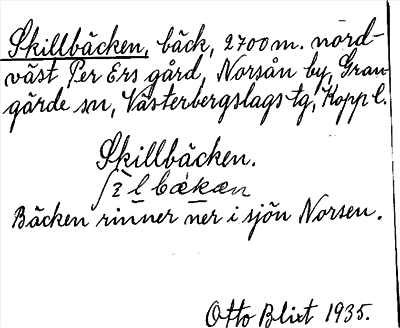 Skillbäcken, bäck, 2700 m. nord-
väst Per Ers gård, Norsån by, Gran-
gärde sn, Västerbergslags tg, Kopp l.
Skillbäcken.
Bäcken rinner ner i sjön Norsen.
Otto Blixt 1935.